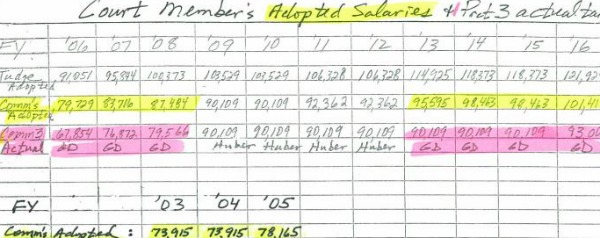 Court Member's Adopted Salaries & Prct 3 actual
FY '06 '07 '08 '09 '10 '11 '12 '13 '14 '15 '16
Judge 91,051 95,844 100,373 103,529 103,529 106,328 106,328 114,925 118,373 118,373
Adopted
Comm's 79,729 83,716 87,484 90,109 90,109 92,362 92,362 95,595 98,463 101,41
Adopted
Comm 3 67,854 76,872 79,566 90,109 90,109 90,109 90,109 90,109 90,109 90,109 93,00
Actual GD GD GD Huber Huber Huber Huber GD GD GD GD
FY '03 '04 '05
Comm's Adopted : 73,915 73,915 78,165